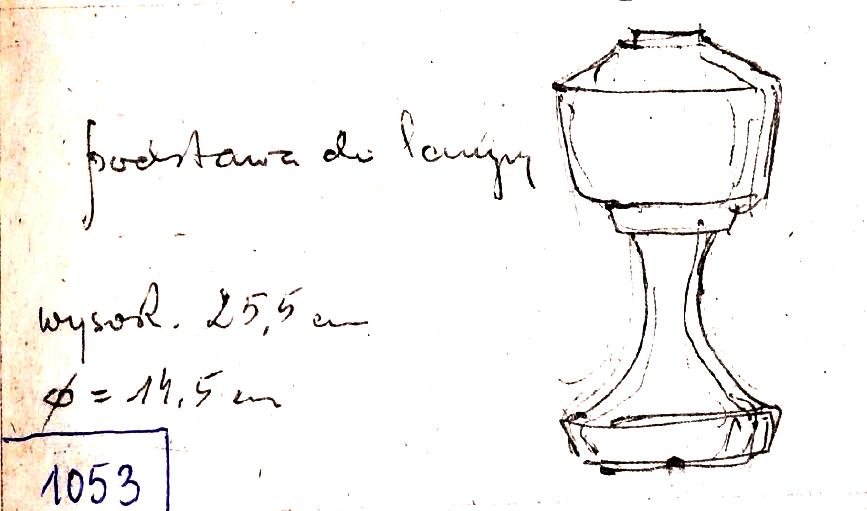 podstawa do lampy
wysok. 25,5 cm
ϕ = 14,5 cm
1053